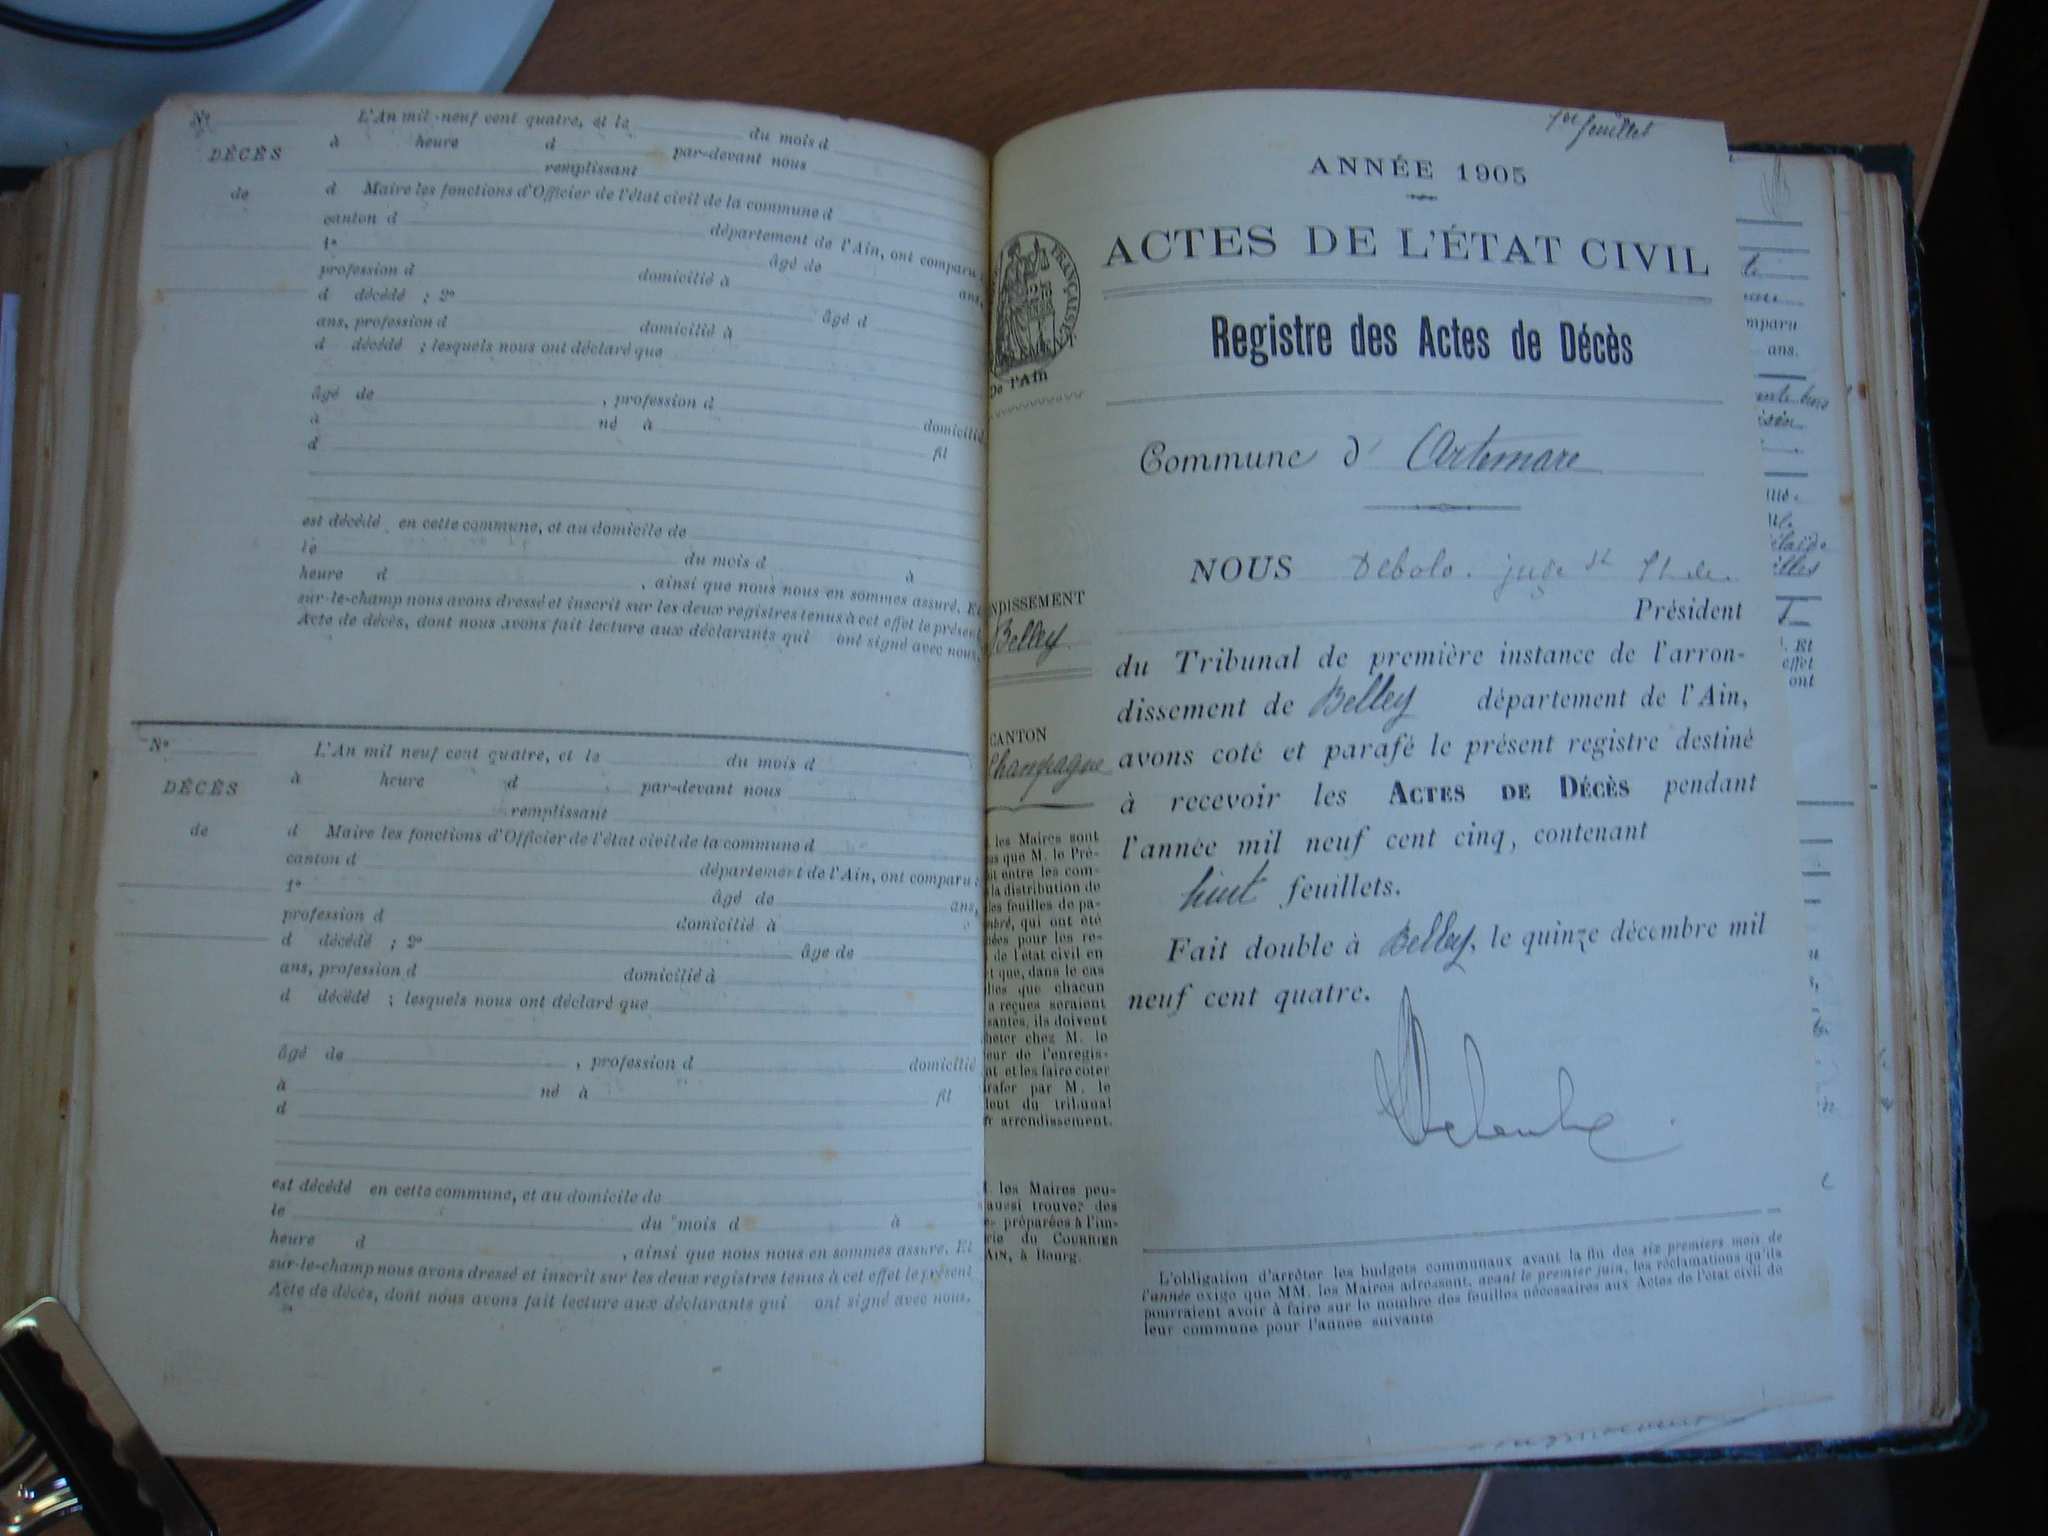 N°
L'An mil neuf cent quatre, et le du mois d
DÉCÈS
à heure d par-devant nous
remplissant
de
d Maire les fonctions d'Officier de l'état civil de la commune d
canton d département de l'Ain, ont comparu :
1° âgé de ans,
profession d domicilié à
d décédé ; 2° âgé d
ans, profession d domicilié à
d décédé ; lesquels nous ont déclaré que
âgé de , profession d domicilié
à né à fil
d
est décédé en cette commune, et au domicile de
le du mois d à
heure d , ainsi que nous nous en sommes assuré. Et
sur-le-champ nous avons dressé et inscrit sur les deux registres tenus à cet effet le présent
Acte de décès, dont nous avons fait lecture aux déclarants qui ont signé avec nous.
N°
L'An mil neuf cent quatre, et le du mois d
DÉCÈS
à heure d par-devant nous
remplissant
de
d Maire les fonctions d'Officier de l'état civil de la commune d
canton d département de l'Ain, ont comparu :
1° âgé de ans,
profession d domicilié à
d décédé ; 2° âge de
ans, profession d domicilié à
d décédé ; lesquels nous ont déclaré que
âgé de , profession d domicilié
à né à fil
d
est décédé en cette commune, et au domicile de
le du mois d à
heure d , ainsi que nous nous en sommes assuré. Et
sur-le-champ nous avons dressé et inscrit sur les deux registres tenus à cet effet le présent
Acte de décès, dont nous avons fait lecture aux déclarants qui ont signé avec nous.
FRANÇAISE
De l'Ain
NDISSEMENT
Belley
CANTON
Champagne
les Maires sont
us que M. le Pré-
et entre les com-
la distribution de
les feuilles de pa-
mbré, qui ont été
nées pour les re-
de l'état civil en
t que, dans le cas
lles que chacun
a reçues seraient
santes, ils doivent
heter chez M. le
eur de l'enregis-
nt et les faire coter
rafer par M. le
dent du tribunal
r arrondissement.
. les Maires peu-
aussi trouver des
préparées à l'im-
rie du COURRIER
AIN, à Bourg.
1er feuillet
ANNÉE 1905
ACTES DE L'ÉTAT CIVIL
Registre des Actes de Décès
Commune d' Artemare
NOUS Debolo. juge
Président
du Tribunal de première instance de l'arron-
dissement de Belley département de l'Ain,
avons coté et parafé le présent registre destiné
à recevoir les ACTES DE DÉCÈS pendant
l'année mil neuf cent cinq, contenant
huit feuillets.
Fait double à Belley, le quinze décembre mil
neuf cent quatre.
L'obligation d'arrêter les budgets communaux avant la fin des six premiers mois de
l'année exige que MM. les Maires adressent, avant le premier juin, les réclamations qu'ils
pourraient avoir à faire sur le nombre des feuilles nécessaires aux Actes de l'état civil de
leur commune pour l'année suivante
mparu
ans.
. Et
effet
ont